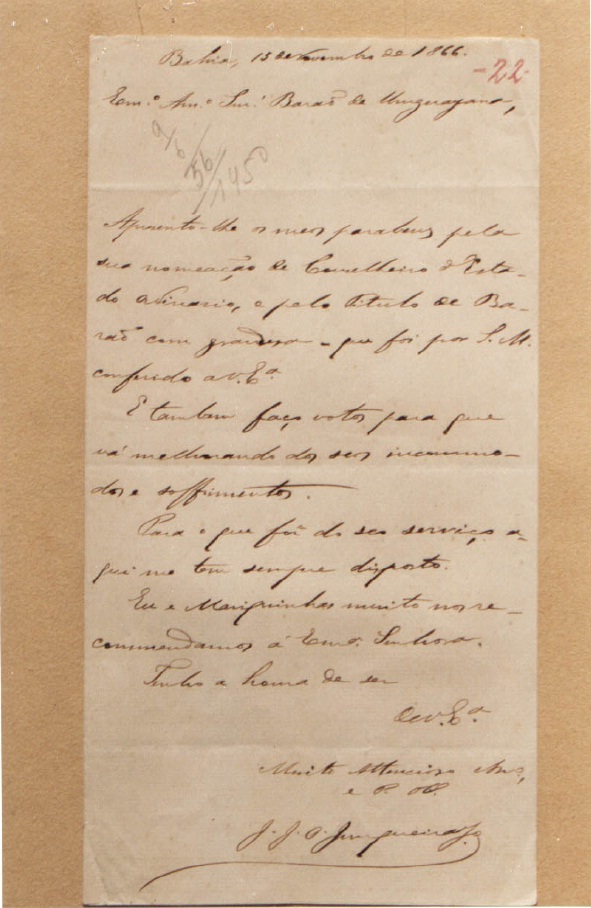 Bahia, 15 de Novembro de 1866.
-22-
Exm.º Am.º Snr.º Barão de Uruguayana,
9/6
56/1450
Apresento-lhe os meos parabens pela
sua nomeação de Conselheiro d'Esta-
do ordinario, e pelo titulo de Ba-
rão com grandesa - que foi por S. M.
conferido a V. Ex.ª
E tambem faço votos para que
vá melhorando dos seos incommo-
dos e soffrimentos.
Para o que fôr do seo serviço a-
qui me tem sempre disposto.
Eu e Mariquinhas muito nos re-
commendamos á Exmª. Senhora.
Tenho a honra de ser
De V. Ex.ª
Muito Attencioso Amº,
e
J. J. O. Junqueira Jor